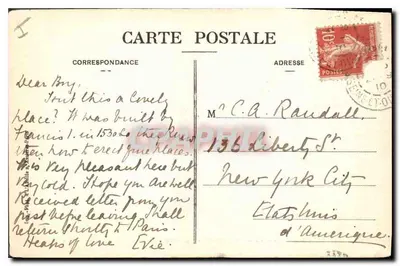 I
CARTE POSTALE
CORRESPONDANCE
ADRESSE
Dear Boy.
Isn't this a lovely
place? It was built by
Francis I. in 1530
then how to erect
It is very pleasant here but
very cold. I hope you are well
Received letter from you
just before leaving, shall
return shortly to Paris.
Heaps of love Evie.
M r. C. A. Randall,
136 Liberty St.
New York City
Etats Unis
d'Amerique.
10
10